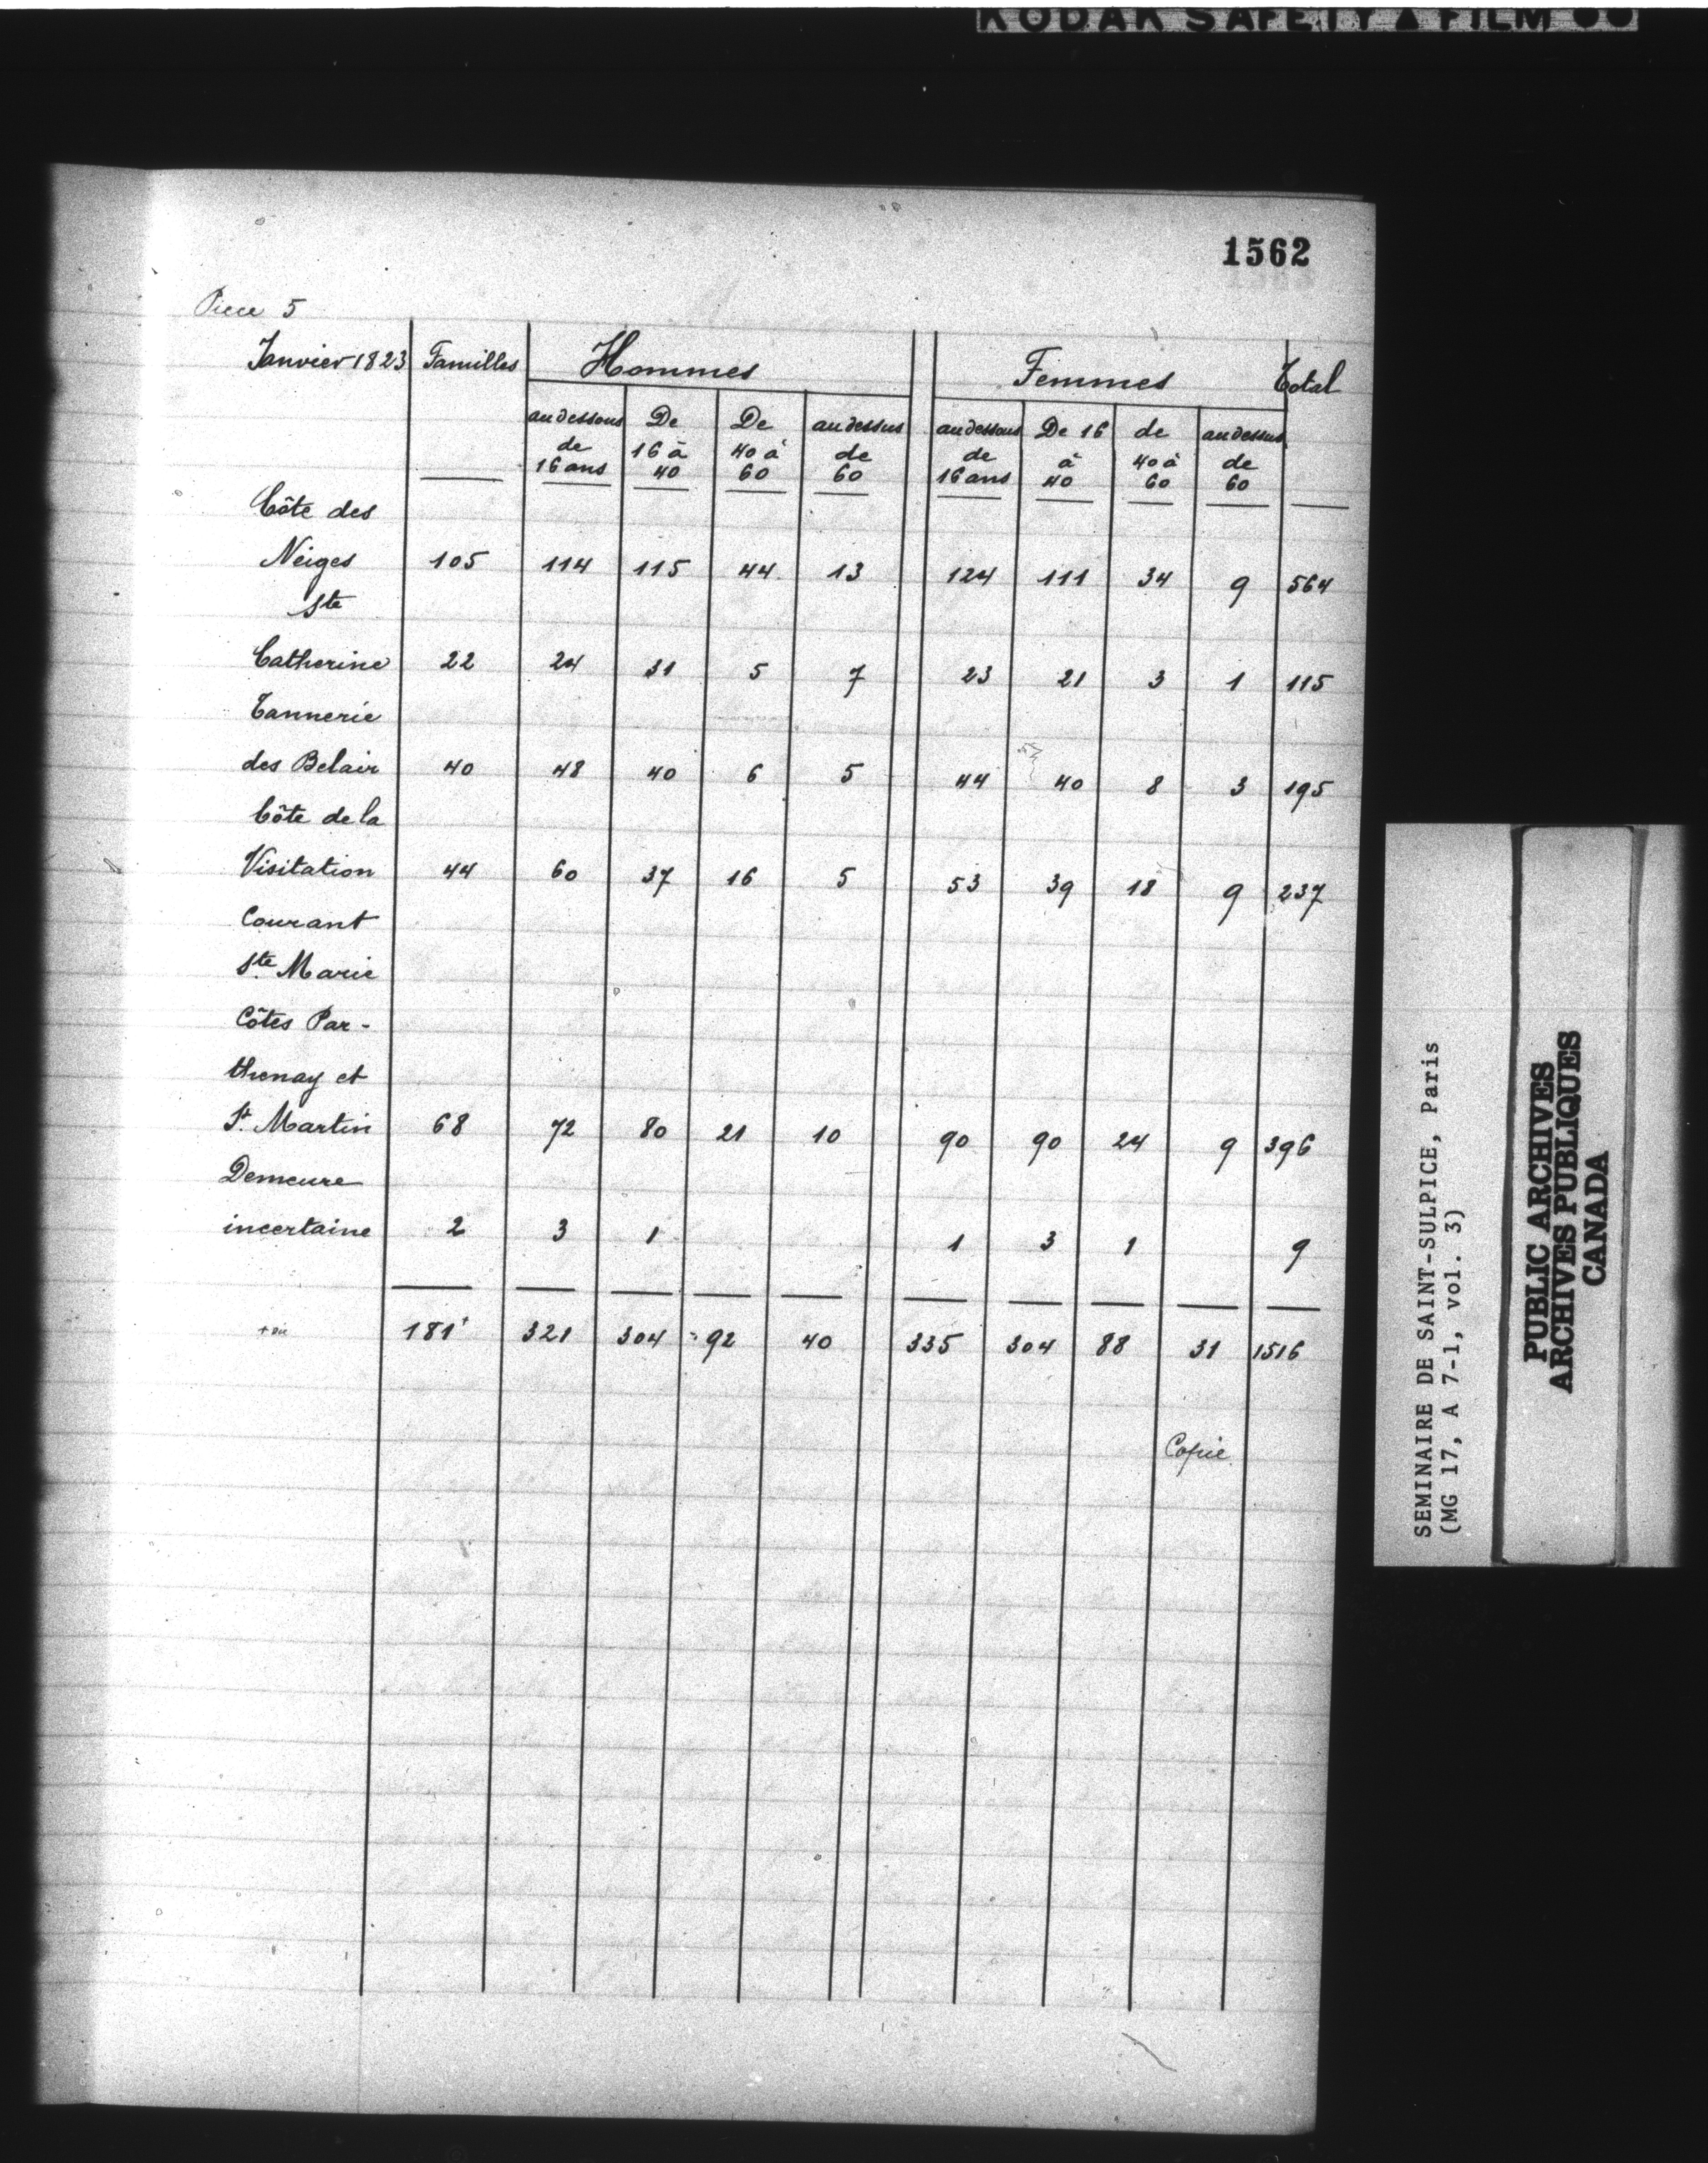 KODAK SAFETY ▲ FILM ●●
1562
Piece 5
Janvier 1823 | Familles | Hommes | Femmes | Total
au dessous de 16 ans | De 16 à 40 | De 40 à 60 | au dessus de 60 | au dessous de 16 ans | De 16 à 40 | de 40 à 60 | au dessus de 60
Côte des
Neiges 105 114 115 44 13 124 111 34 9 564
Ste
Catherine 22 24 31 5 7 23 21 3 1 115
Tannerie
des Belair 40 48 40 6 5 44 40 8 3 195
Côte de la
Visitation 44 60 37 16 5 53 39 18 9 237
Courant
Ste Marie
Côtes Par-
thenay et
St. Martin 68 72 80 21 10 90 90 24 9 396
Demeure
incertaine 2 3 1 1 3 1 9
181+ 321 304 92 40 335 304 88 31 1516
Copie
SEMINAIRE DE SAINT-SULPICE, Paris
(MG 17, A 7-1, vol. 3)
PUBLIC ARCHIVES
ARCHIVES PUBLIQUES
CANADA